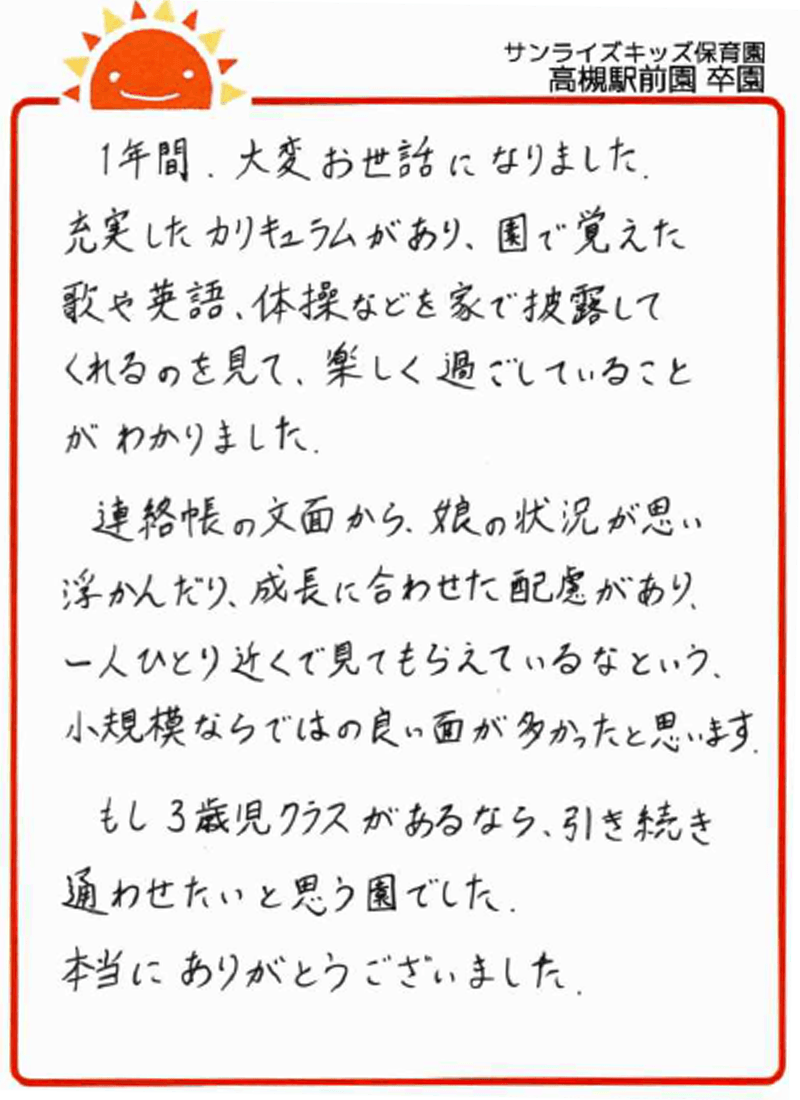 サンライズキッズ保育園
高槻駅前園 卒園
1年間、大変お世話になりました。
充実したカリキュラムがあり、園で覚えた
歌や英語、体操などを家で披露して
くれるのを見て、楽しく過ごしていること
がわかりました。
連絡帳の文面から、娘の状況が思い
浮かんだり、成長に合わせた配慮があり、
一人ひとり近くで見てもらえているなという、
小規模ならではの良い面が多かったと思います。
もし3歳児クラスがあるなら、引き続き
通わせたいと思う園でした。
本当にありがとうございました。